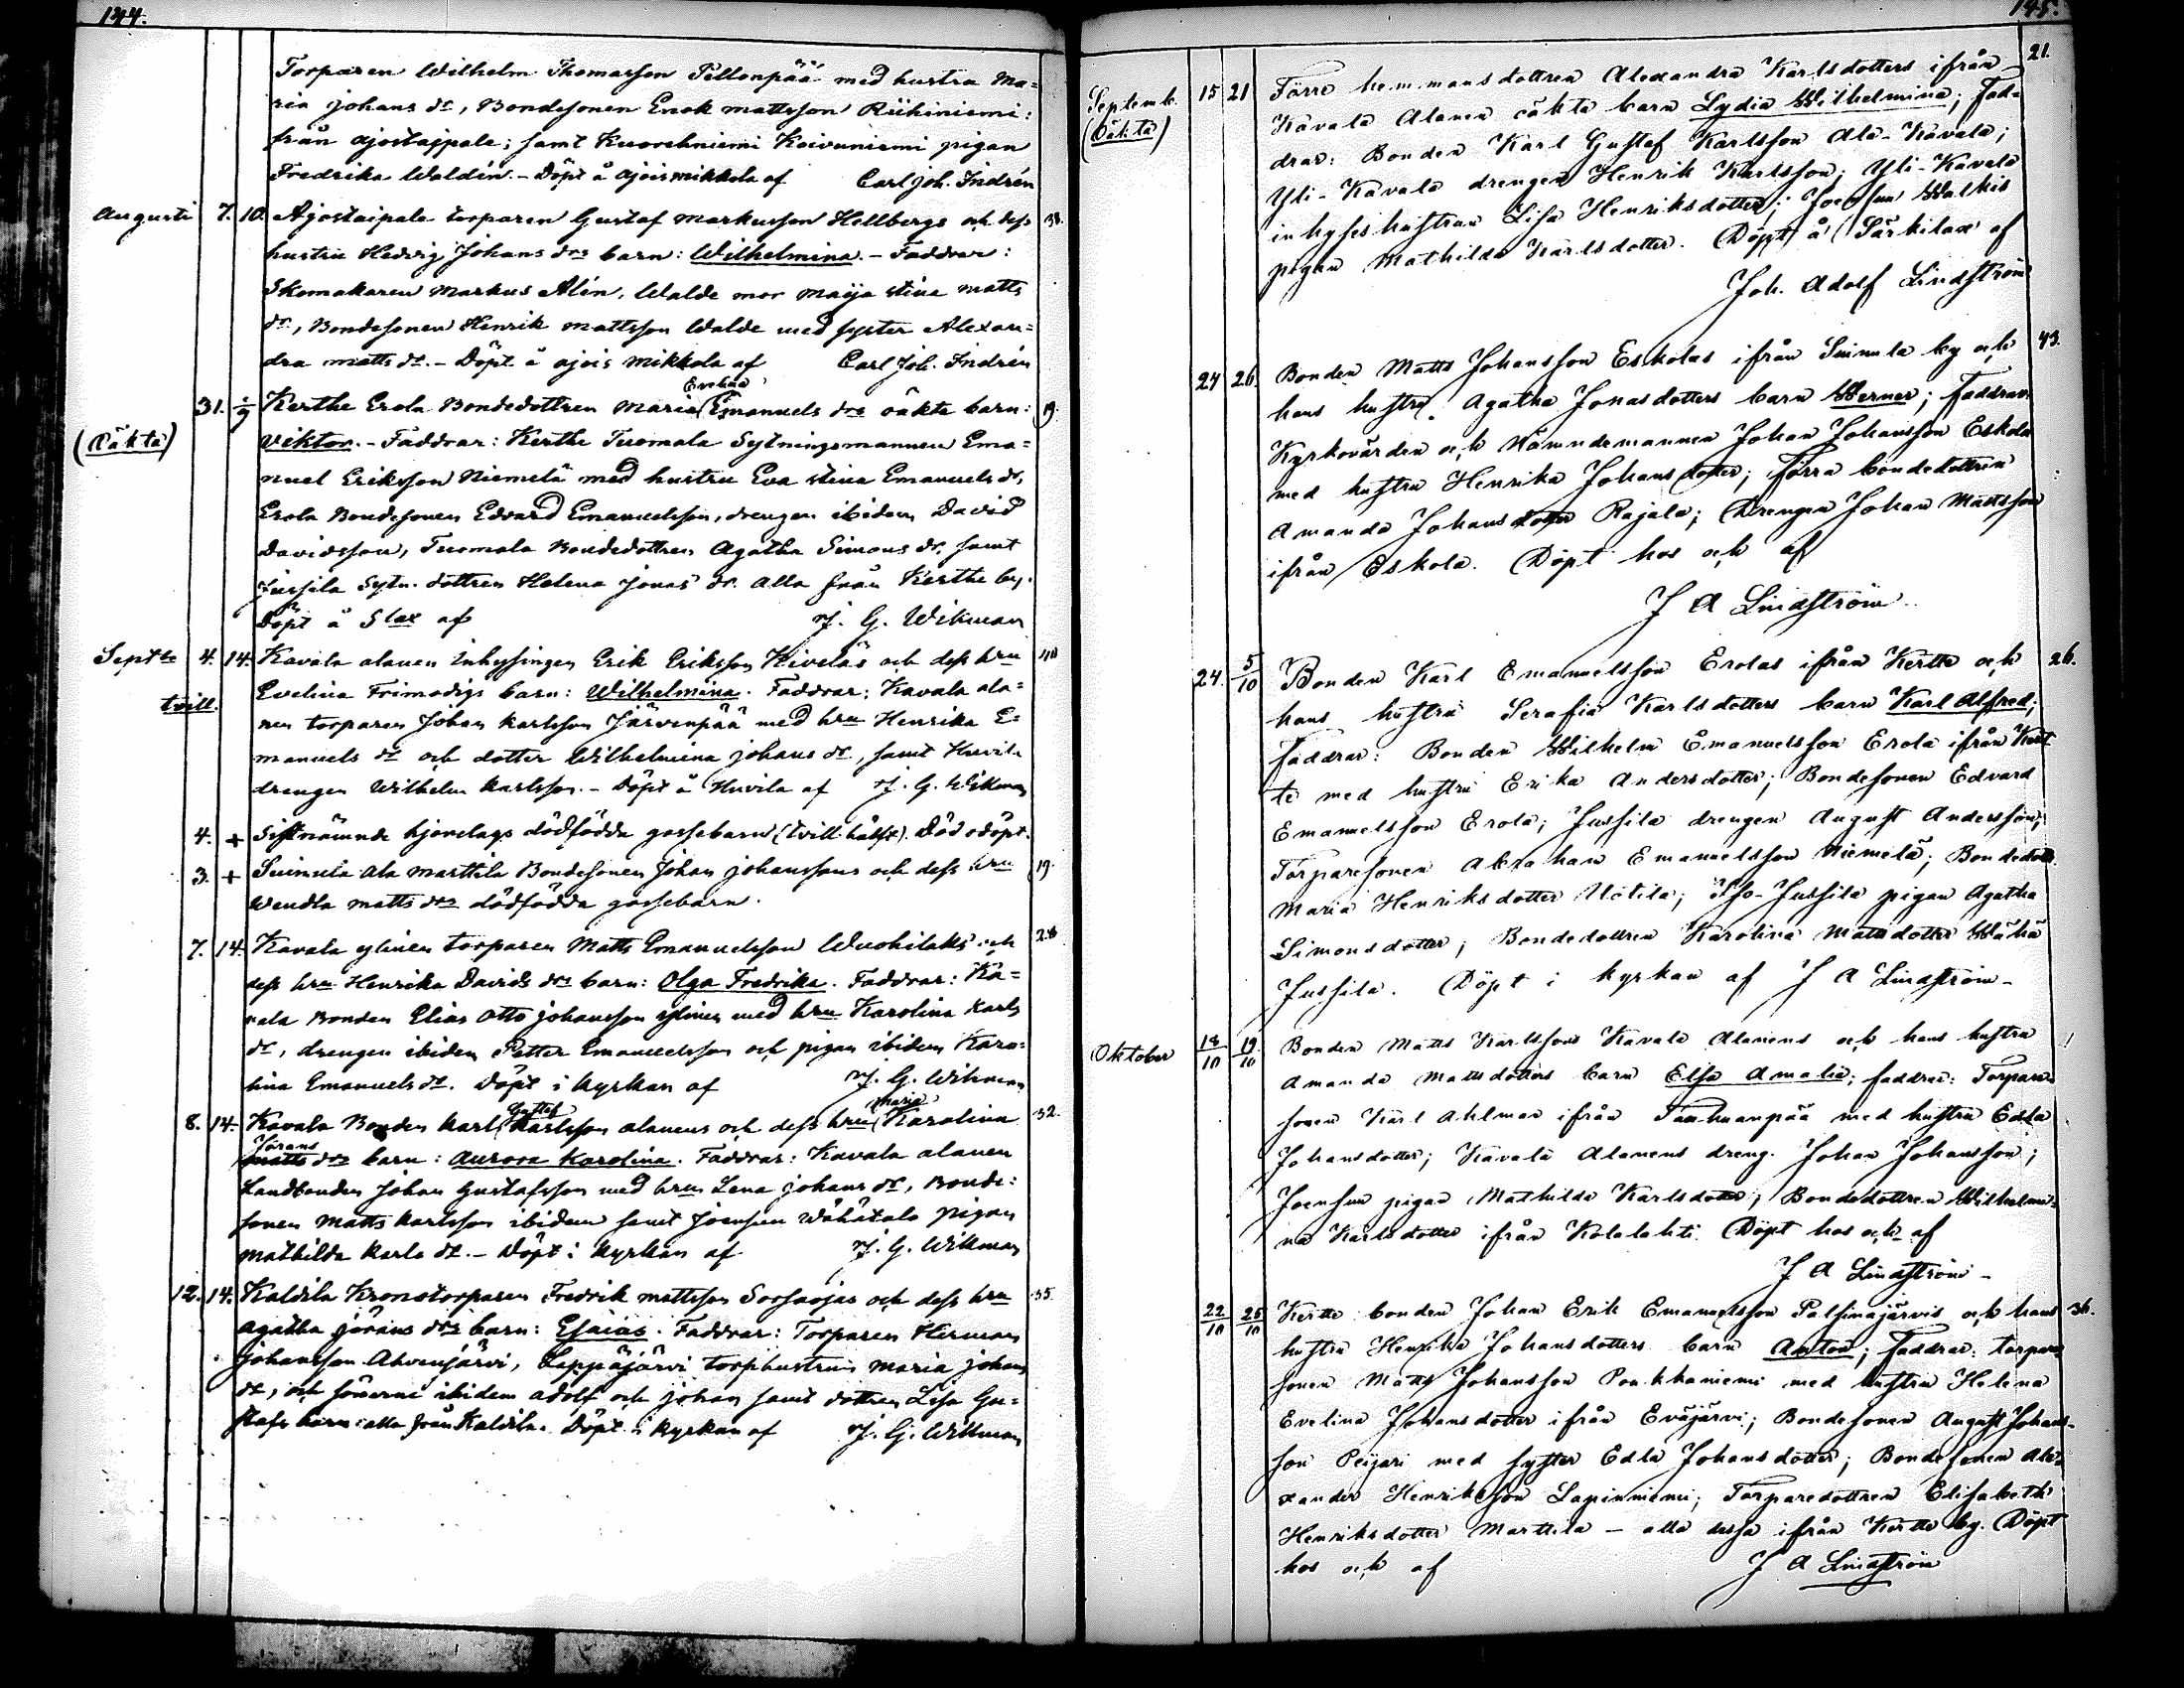 144.
Torparen Wilhelm Thomasson Pellonpää med hustru Ma=
ria Johans dr, Bondesonen Enok Mattsson Riihiniemi:
från Ajostaipale; samt Kuorehniemi Koivuniemi pigan
Fredrika Waldén. - Döpt å Ajois mikkola af Carl Joh. Indrén
Augusti 7. 10. Ajostaipale torparen Gustaf Markusson Hellbergs och dess 38.
hustru Hedvig Johans drs barn: Wilhelmina. - Faddrar:
Skomakaren Markus Alén, Walde mor Maija Stina Matts
dr, Bondesonen Henrik Mattsson Walde med syster Alexan=
dra Matts dr. - Döpt å Ajois Mikkola af Carl Joh. Indrén
Evelina
31. 1/9 Kerthe Erola Bondedottren Maria Emanuels drs oäkta barn: 19.
(Oäkta) Viktor. - Faddrar: Kerthe Tuomala Sytningsmannen Ema=
nuel Eriksson Niemelä med hustru Eva Stina Emanuels dr,
Erola Bondesonen Edvard Emanuelsson, drengen ibidem David
Davidsson, Tuomala Bondedottren Agatha Simons dr, samt
Jussila Sytn. dottren Helena Jonas dr. alla från Kerthe by.
Döpt å Slax af J. G. Wikman
Septbr 4. 14. Kavala alanen Inhysingen Erik Eriksson Kiveläs och dess hru 40
tvill. Evelina Frimodigs barn: Wilhelmina. Faddrar: Kavala ala=
nen torparen Johan Karlsson Järvenpää med hru Henrika E=
manuels dr och dotter Wilhelmina Johans dr, samt Huvila
drengen Wilhelm Karlsson. - Döpt å Huvila af J. G. Wikman
4. + Sistnämnde hjonelags dödfödda gossebarn (tvill. hälft). Död odöpt.
3. + Suinula Ala Marttila Bondesonen Johan Johanssons och dess hru 19.
Wendla Matts drs dödfödda gossebarn.
7. 14. Kavala ylinen torparen Matts Emanuelsson Wuohilaks och 28
dess hru Henrika Davids drs barn: Olga Fredrika. Faddrar: Ka=
vala Bonden Elias Otto Johansson ylinen med hru Karolina Karls
dr, drengen ibidem Petter Emanuelsson och pigan ibidem Karo=
lina Emanuels dr. Döpt i kyrkan af J. G. Wikman
Gustaf Maria
8. 14. Kavala Bonden Karl Karlsson alanens och dess hru Karolina 32.
Jörans
Matts drs barn: Aurora Karolina. Faddrar: Kavala alanen
Landbonden Johan Gustafsson med hru Lena Johans dr, Bonde=
sonen Matts Karlsson ibidem samt Joensuu Wähätalo pigan
Mathilda Karls dr. - Döpt i kyrkan af J. G. Wikman
12. 14. Kaldila Kronotorparen Fredrik Mattsson Sorsaojas och dess hru 35.
Agatha Jörans drs barn: Esaias. Faddrar: Torparen Herman
Johansson Ahvenjärvi, Leppäjärvi torphustrun Maria Johans
dr, och sönerne ibidem Adolf och Johan samt dottren Lisa Gu=
stafs barn: alla från Kaldila. Döpt i kyrkan af J. G. Wikman
145.
Septemb. 15 21 Förre hemmansdottren Alexandra Karlsdotters ifrån 21.
(Oäkta) Kavala Alanen oäkta barn Lydia Wilhelmina; Fad-
drar: Bonden Karl Gustaf Karlsson Ala-Kavala;
Yli-Kavala drengen Henrik Karlsson; Yli-Kavala
inhyseshustrun Lisa Henriksdotter; Joensuu
pigan Mathilda Karlsdotter. Döpt å Särkilax af
Joh. Adolf Lindström
24 26. Bonden Matts Johansson Eskolas ifrån Suinula by och 43.
hans hustru Agatha Jonasdotters barn Werner; Faddrar:
Kyrkovärden och Nämndemannen Johan Johansson Eskola
med hustru Henrika Johansdotter; Förra bondedottren
Amanda Johansdotter Rajala; Drengen Johan Mattsson
ifrån Eskola. Döpt hos och af
J A Lindström
24. 5/10 Bonden Karl Emanuelsson Erolas ifrån Kertte och 26.
hans hustru Serafia Karlsdotters barn Karl Alfred;
faddrar: Bonden Wilhelm Emanuelsson Erola ifrån Kert
te med hustru Erika Andersdotter; Bondesonen Edvard
Emanuelsson Erola; Jussila drengen August Andersson;
Torparesonen Abraham Emanuelsson Niemelä; Bondedott.
Maria Henriksdotter Uotila; Iso-Jussila pigan Agatha
Simonsdotter; Bondedottren Karolina Mattsdotter Wähä
Jussila. Döpt i kyrkan af J A Lindström -
Oktober 18/10 19/10 Bonden Matts Karlssons Kavala Alanens och hans hustru
Amanda Mattsdotters barn Elsa Amalia; faddrar: Torpare
sonen Karl Ahlman ifrån med hustru Edla
Johansdotter; Kavala Alanens dreng. Johan Johansson;
Joensuu pigan Mathilda Karlsdotter; Bondedottren Wilhelmi-
na Karlsdotter ifrån Kolalahti. Döpt hos och af
J A Lindström -
22/10 25/10 Kertte bonden Johan Erik Emanuelsson Palsinajärvis och hans 36.
hustru Henrika Johansdotters barn Anton; Faddrar: torpare
sonen Matts Johansson Poukkaniemi med hustru Helena
Evelina Johansdotter ifrån Eväjärvi; Bondesonen August Johans-
son Peijari med syster Edla Johansdotter; Bondesonen Ale-
xander Henriksson Lapinniemi; Torparedottren Elisabeth
Henriksdotter Marttila - alla dessa ifrån Kertte by. Döpt
hos och af J A Lindström